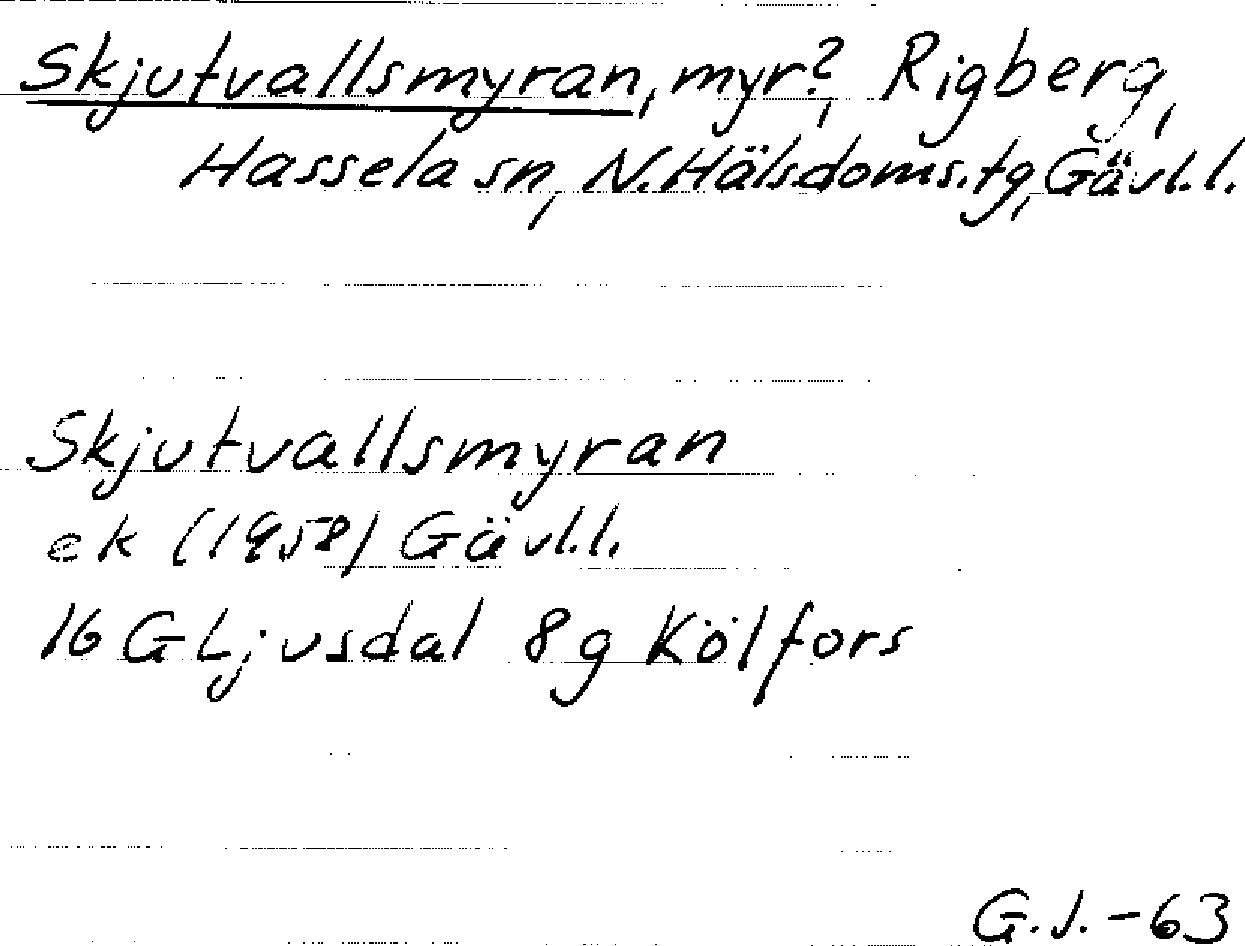 Skjutvallsmyran, myr?, Rigberg,
Hassela sn, N.Hälsdoms.tg, Gävl.l.
Skjutvallsmyran
ek (1958) Gävl.l.
16 G Ljusdal 8g Kölfors
G.J.-63